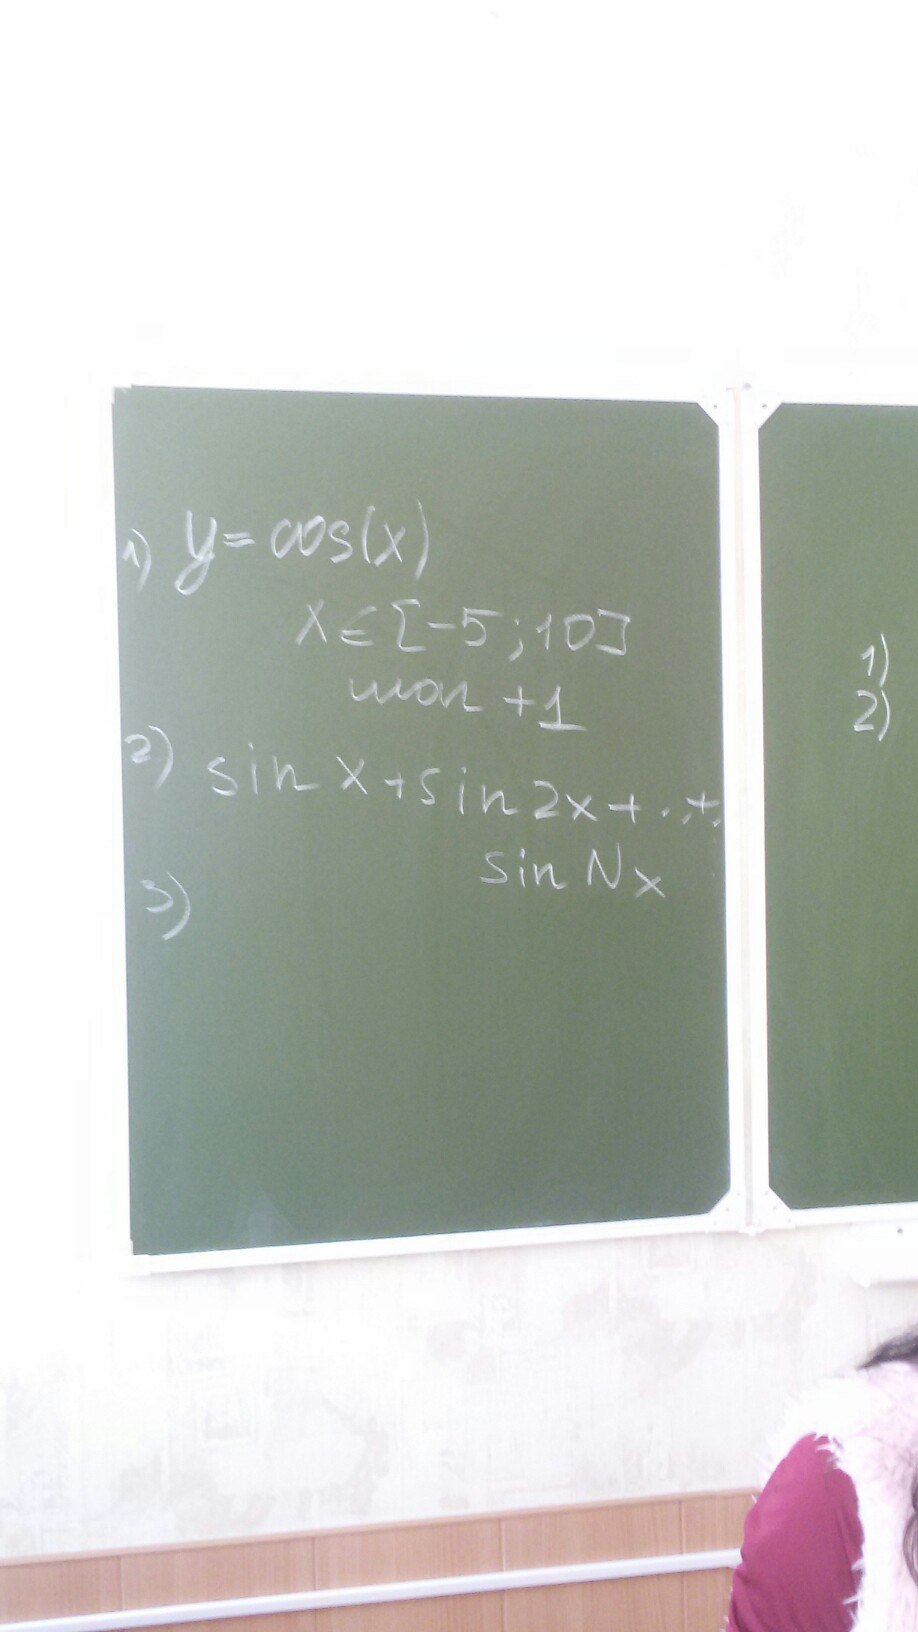 1) y=cos(x)
x∈[-5;10]
шаг +1
2) sin x+sin 2x+..+
sin Nx
3)
1)
2)